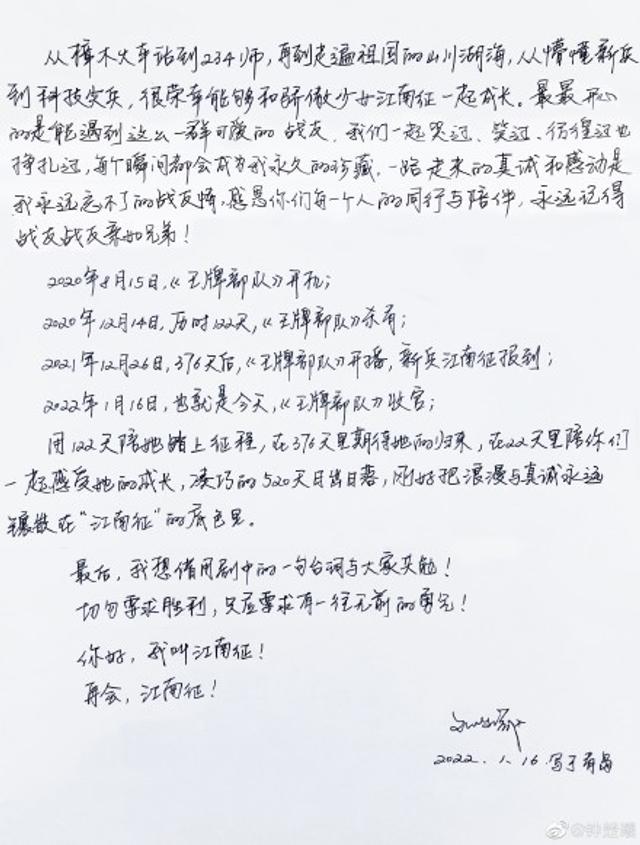 从樟木火车站到234师，再到走遍祖国的山川湖海，从懵懂新兵
到科技尖兵，很荣幸能够和骄傲少女江南征一起成长。最最开心
的是能遇到这么一群可爱的战友，我们一起哭过、笑过、彷徨过也
挣扎过，每个瞬间都会成为我永久的珍藏，一路走来的真诚和感动是
我永远忘不了的战友情，感恩你们每一个人的同行与陪伴，永远记得
战友战友亲如兄弟！
2020年8月15日，《王牌部队》开机；
2020年12月14日，历时122天，《王牌部队》杀青；
2021年12月26日，376天后，《王牌部队》开播，新兵江南征报到；
2022年1月16日，也就是今天，《王牌部队》收官；
用122天陪她踏上征程，在376天里期待她的归来，在22天里陪你们
一起感受她的成长，凑巧的520天日出日暮，刚好把浪漫与真诚永远
镶嵌在“江南征”的底色里。
最后，我想借用剧中的一句台词与大家共勉！
切勿要求胜利，只应要求有一往无前的勇气！
你好，我叫江南征！
再会，江南征！
2022.1.16 写于青岛
@钟楚曦